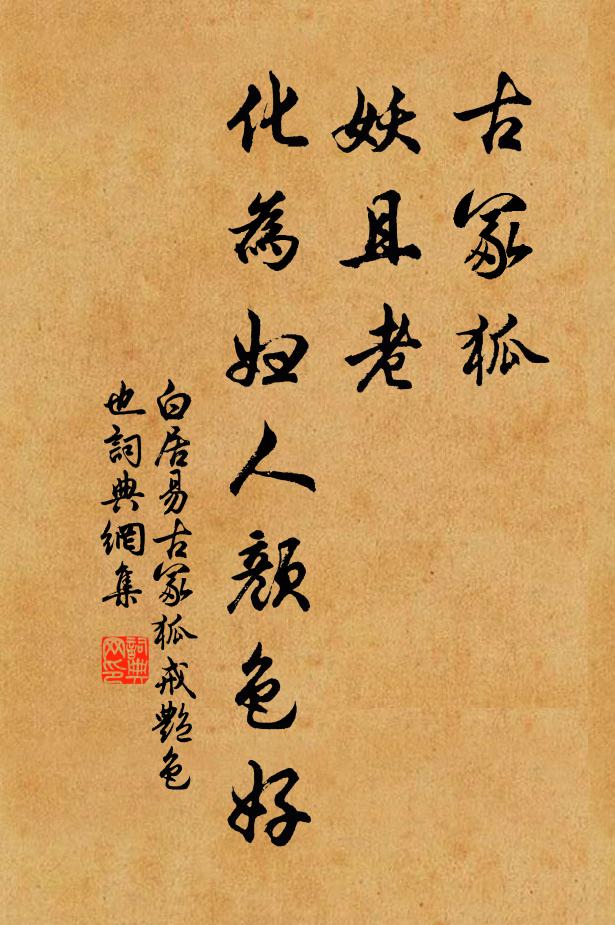 古冢狐
妖且老
化為妇人顏色好
白居易古冢狐戒艷色
也詞典網集
詞典
网印